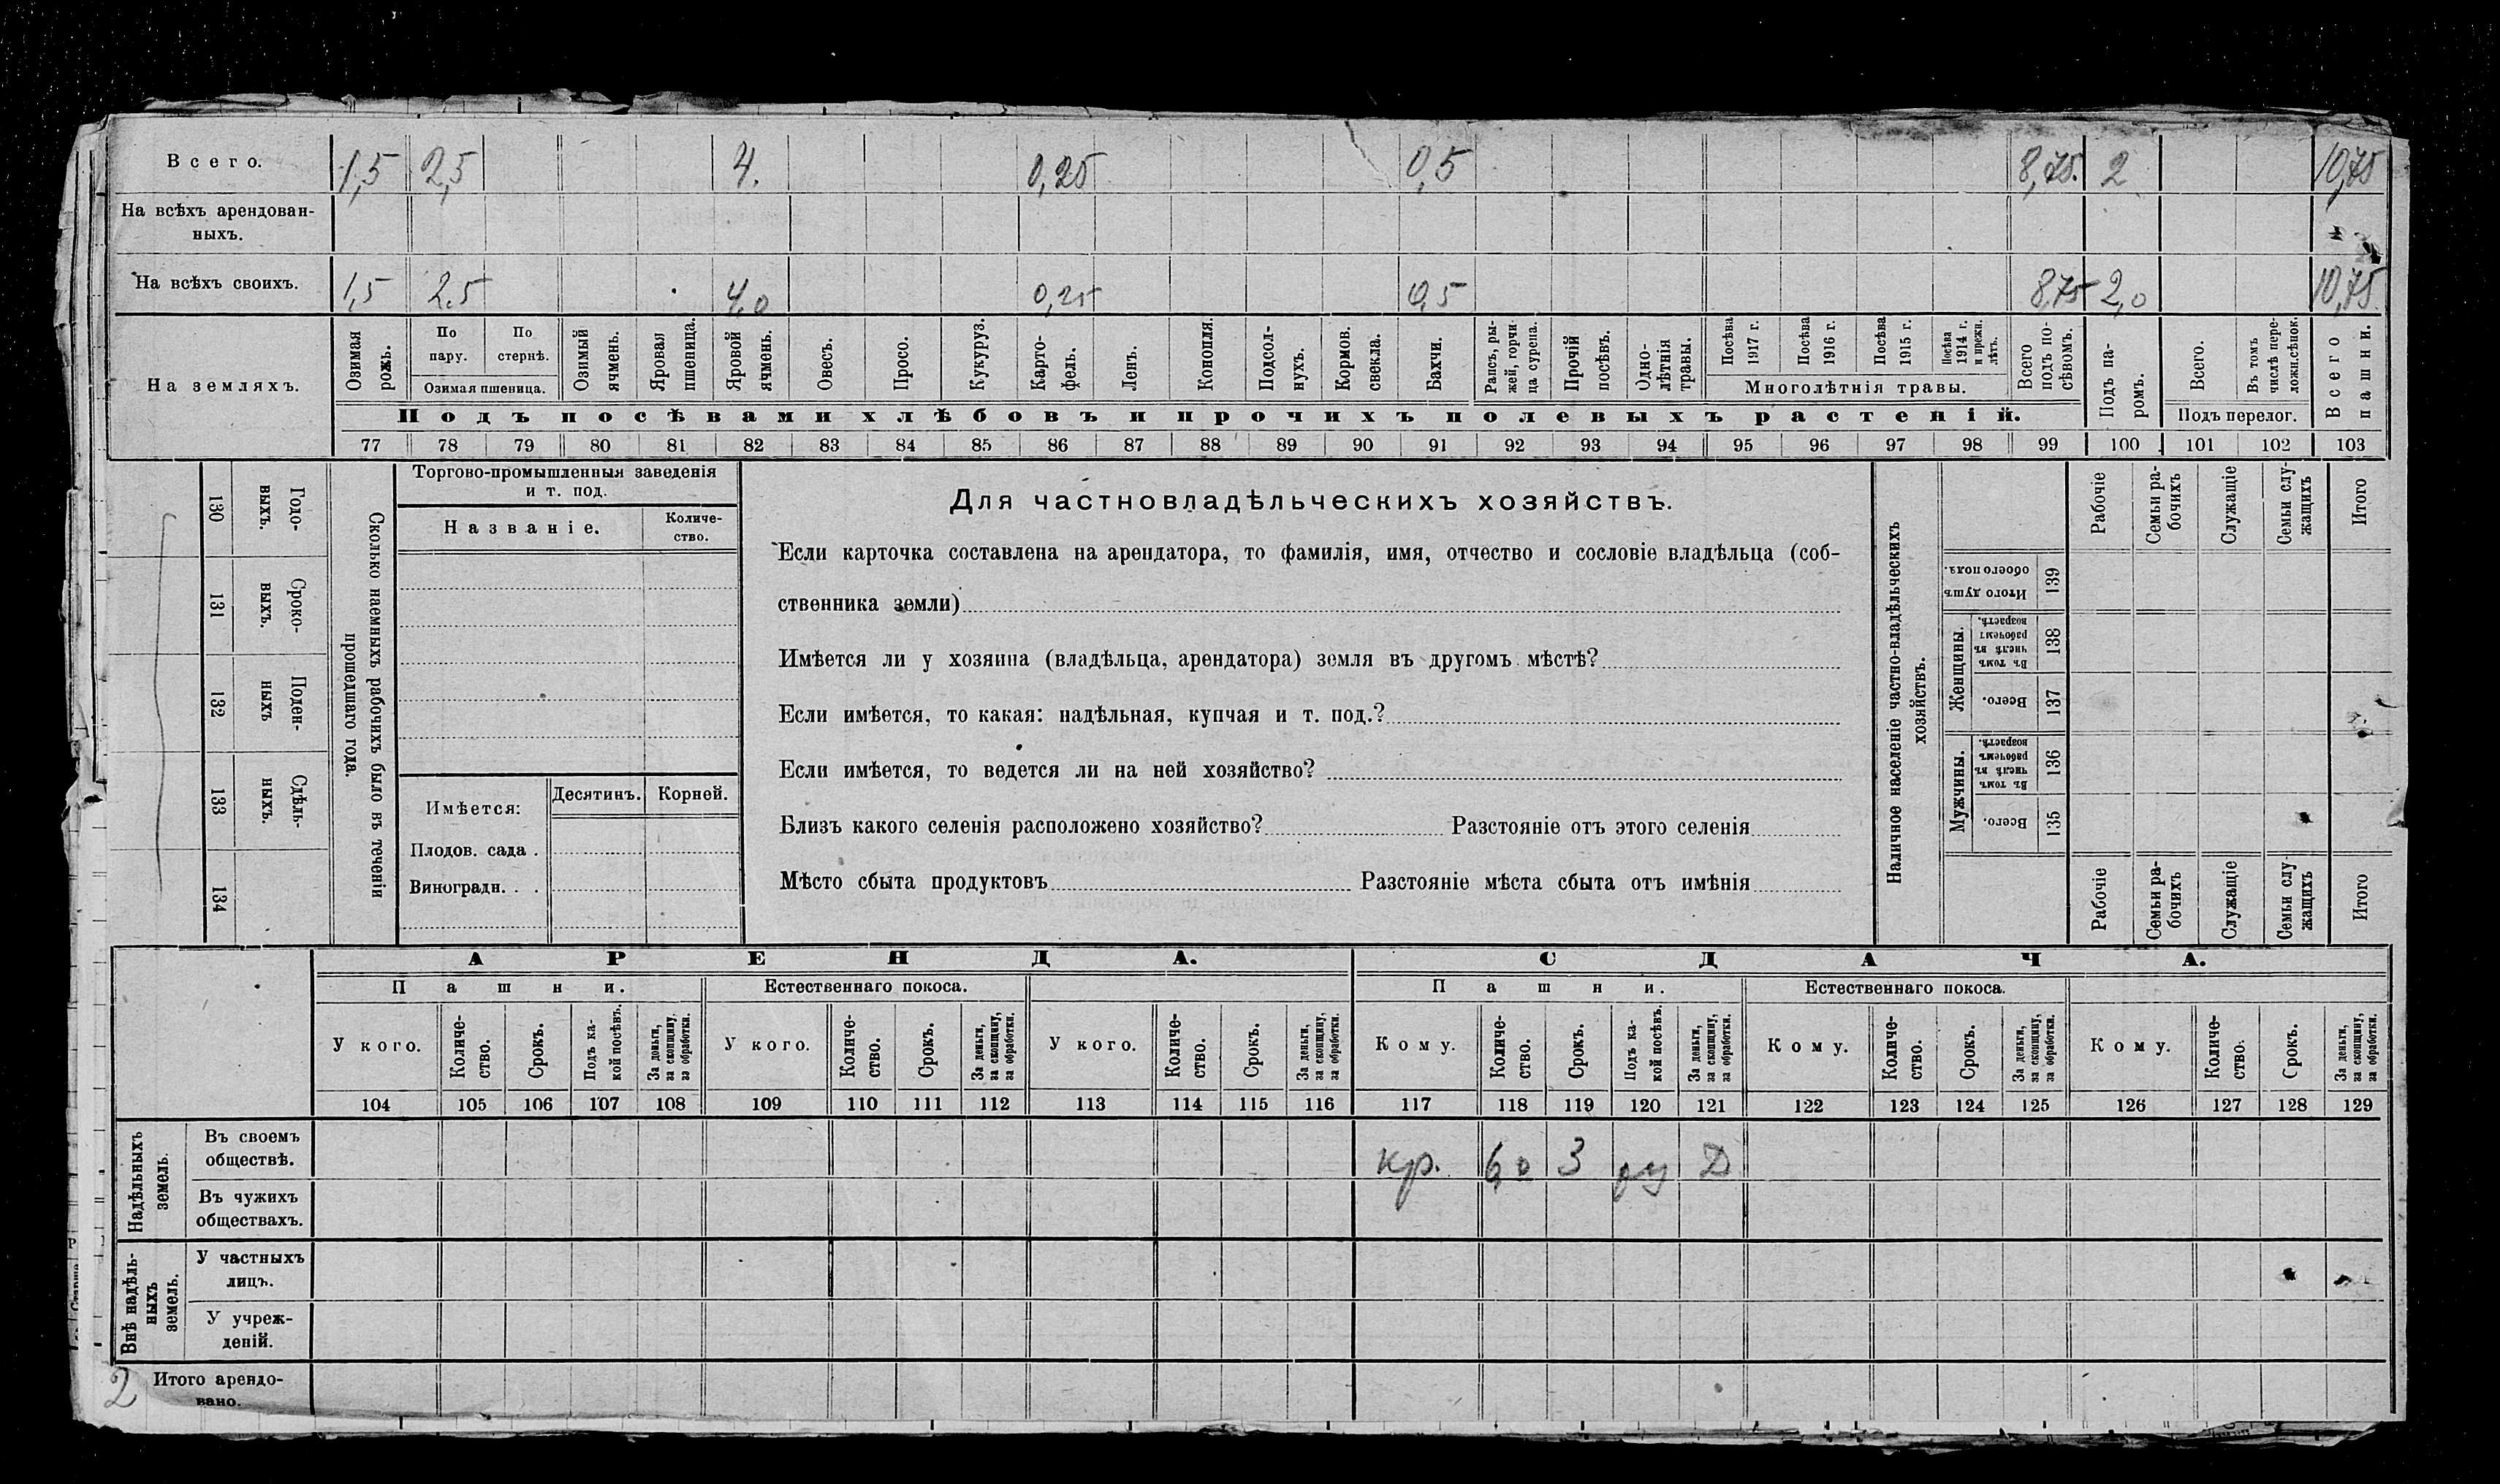 Всего. 1,5 2,5 4. 0,25 0,5 8,75. 2 10,75
На всѣхъ арендован-
ныхъ.
На всѣхъ своихъ. 1,5 2.5 4,0 0,25 0,5 8,75 2,0 10,75
На земляхъ.
Озимая
рожь.
По
пару.
По
стернѣ.
Озимая пшеница.
Озимый
ячмень.
Яровая
пшеница.
Яровой
ячмень.
Овесъ.
Просо.
Кукуруз.
Карто-
фель.
Ленъ.
Конопля.
Подсол-
нухъ.
Кормов.
свекла.
Бахчи.
Рапсъ, ры-
жей, горчи-
ца сурепа.
Прочій
посѣвъ.
Одно-
лѣтнія
травы.
Посѣва
1917 г.
Посѣва
1916 г.
Посѣва
1915 г.
Посѣва
1914 г.
и прежн.
лѣтъ.
Многолѣтнія травы.
Всего
подъ по-
сѣвомъ.
Подъ па-
ромъ.
Всего.
Въ томъ
числѣ пере-
ложн.сѣнок.
Подъ перелог.
Всего
пашни.
Подъ посѣвами хлѣбовъ и прочихъ полевыхъ растеній.
77 78 79 80 81 82 83 84 85 86 87 88 89 90 91 92 93 94 95 96 97 98 99 100 101 102 103
Сколько наемныхъ рабочихъ было въ теченіи
прошедшаго года.
Годо-
выхъ.
130
Сроко-
выхъ.
131
Поден-
ныхъ
132
Сдѣль-
ныхъ.
133
134
Торгово-промышленныя заведенія
и т. под.
Названіе.
Количе-
ство.
Имѣется:
Десятинъ.
Корней.
Плодов. сада .
Виноградн. . .
Для частновладѣльческихъ хозяйствъ.
Если карточка составлена на арендатора, то фамилія, имя, отчество и сословіе владѣльца (соб-
ственника земли)
Имѣется ли у хозяина (владѣльца, арендатора) земля въ другомъ мѣстѣ?
Если имѣется, то какая: надѣльная, купчая и т. под.?
Если имѣется, то ведется ли на ней хозяйство?
Близъ какого селенія расположено хозяйство? Разстояніе отъ этого селенія
Мѣсто сбыта продуктовъ Разстояніе мѣста сбыта отъ имѣнія
Наличное населеніе частно-владѣльческихъ
хозяйствъ.
Рабочіе
Семьи ра-
бочихъ
Служащіе
Семьи слу-
жащихъ
Итого
Итого душъ
обоего пола.
139
Женщины.
Въ томъ
числѣ въ
рабочемъ
возрастѣ.
138
Всего.
137
Мужчины.
Въ томъ
числѣ въ
рабочемъ
возрастѣ.
136
Всего.
135
Рабочіе
Семьи ра-
бочихъ
Служащіе
Семьи слу-
жащихъ
Итого
АРЕНДА. СДАЧА.
Пашни. Естественнаго покоса. Пашни. Естественнаго покоса.
У кого.
Количе-
ство.
Срокъ.
Подъ ка-
кой посѣвъ.
За деньги,
за скопщину,
за обработки.
У кого.
Количе-
ство.
Срокъ.
За деньги,
за скопщину,
за обработки.
У кого.
Количе-
ство.
Срокъ.
За деньги,
за скопщину,
за обработки.
Кому.
Количе-
ство.
Срокъ.
Подъ ка-
кой посѣвъ.
За деньги,
за скопщину,
за обработки.
Кому.
Количе-
ство.
Срокъ.
За деньги,
за скопщину,
за обработки.
Кому.
Количе-
ство.
Срокъ.
За деньги,
за скопщину,
за обработки.
104 105 106 107 108 109 110 111 112 113 114 115 116 117 118 119 120 121 122 123 124 125 126 127 128 129
Надѣльныхъ
земель.
Въ своемъ
обществѣ.
кр. 6,0 3 ру Д
Въ чужихъ
обществахъ.
Внѣ надѣль-
ныхъ
земель.
У частныхъ
лицъ.
У учреж-
деній.
2
Итого арендо-
вано.